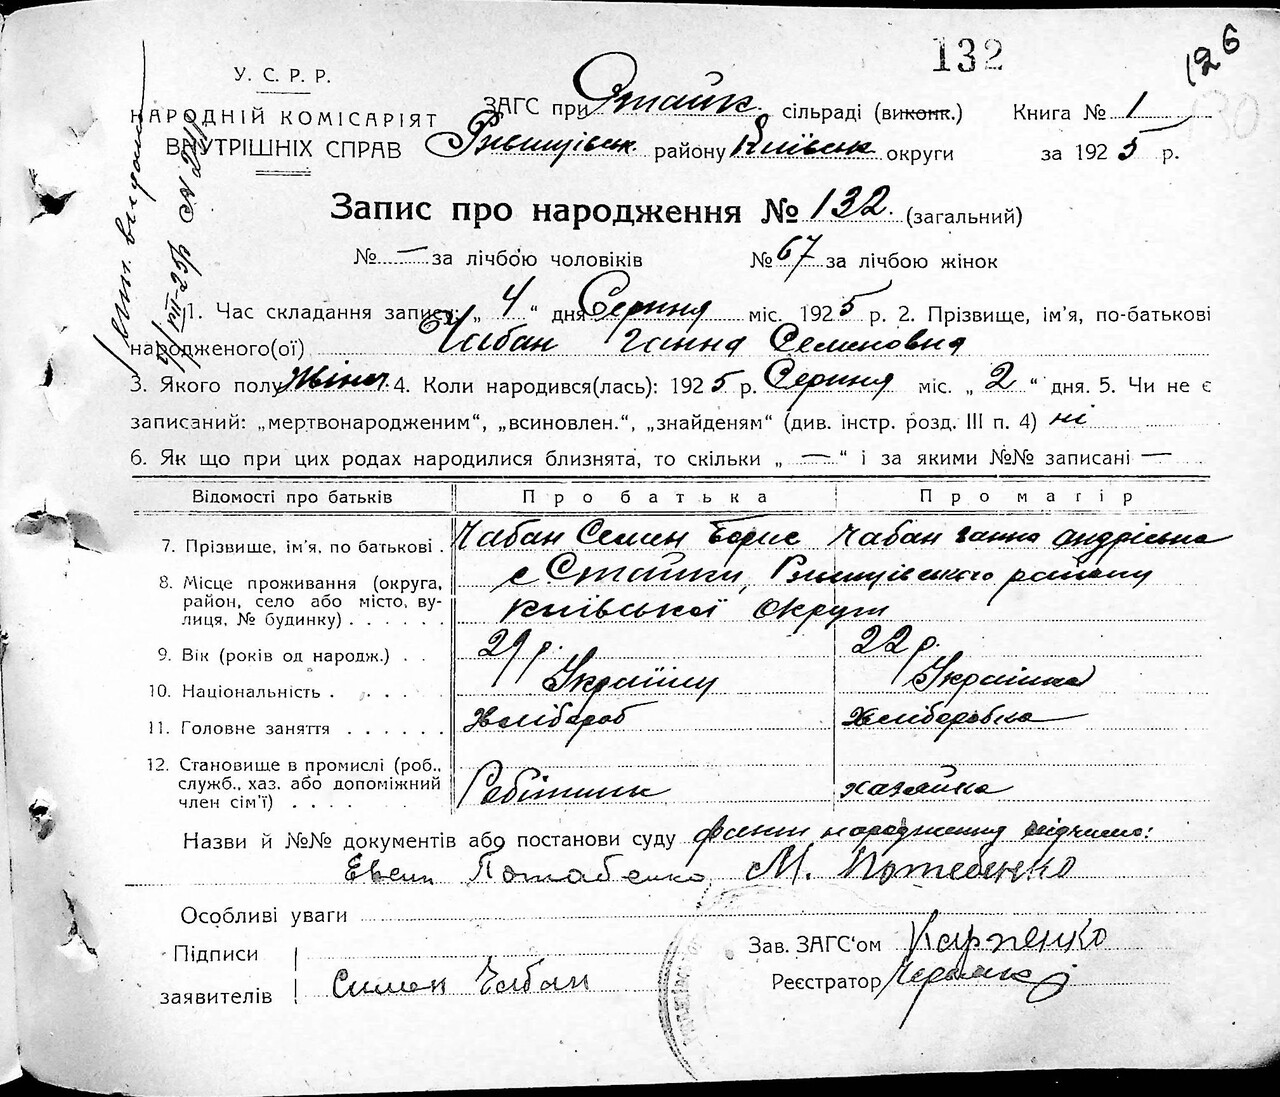 132
126
130
У. С. Р. Р.
НАРОДНІЙ КОМІСАРІЯТ
ВНУТРІШНІХ СПРАВ
ЗАГС при Стайк. сільраді (виконк.)
Ржищівськ району Київськ округи
Книга № 1
за 1925 р.
Запис про народження № 132. (загальний)
№ — за лічбою чоловіків № 67 за лічбою жінок
1. Час складання запису: „ 4 “ дня Серпня міс. 1925 р. 2. Прізвище, ім'я, по-батькові
народженого(ої) Чабан Ганна Семеновна
3. Якого полу жіноч. 4. Коли народився(лась): 1925 р. Серпня міс. „ 2 “ дня. 5. Чи не є
записаний: „мертвонародженим“, „всиновлен.“, „знайденям“ (див. інстр. розд. III п. 4) ні
6. Як що при цих родах народилися близнята, то скільки „ — “ і за якими №№ записані —
Відомості про батьків Про батька Про матір
7. Прізвище, ім'я, по батькові . Чабан Семен Борис Чабан Ганна Андріївна
8. Місце проживання (округа, с. Стайки, Ржищівського району
район, село або місто, ву- Київської округи
лиця, № будинку) . . . . . .
9. Вік (років од народж.) . . 29 р. 22 р.
10. Національність . . . . . Українц Українка
11. Головне заняття . . . . . . Хлібороб Хліборобка
12. Становище в промислі (роб.,
служб., хаз. або допоміжний Робітник хазяйка
член сім'ї) . . . .
Назви й №№ документів або постанови суду факт народження свідчимо:
Евген Потабенко М. Потебенко
Особливі уваги
Підписи
заявителів Симен Чабан
Зав. ЗАГС'ом Карпенко
Реєстратор